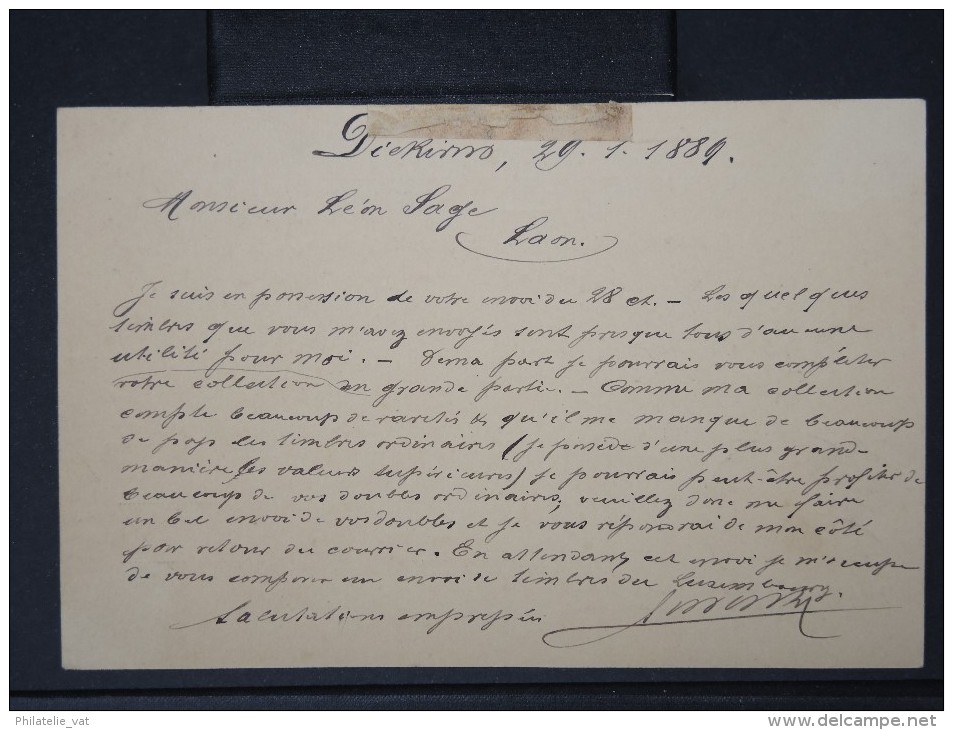 Diekirch, 29. 1. 1889.
Monsieur Léon Sage
Laon.
Je suis en possession de votre envoi du 28 ct. — Les quelques
timbres que vous m'avez envoyés sont presque tous d'aucune
utilité pour moi. — De ma part je pourrais vous compléter
votre collection en grande partie. — Comme ma collection
compte beaucoup de raretés & qu'il me manque de beaucoup
de pays les timbres ordinaires (je possède d'une plus grande
manière les valeurs supérieures) je pourrais peut-être profiter de
beaucoup de vos doubles ordinaires, veuillez donc me faire
un bel envoi de vos doubles et je vous répondrai de mon côté
par retour du courrier. En attendant cet envoi je m'occupe
de vous composer un envoi de timbres du Luxembourg.
Salutations empressées
Philatelie_vat
www.delcampe.net